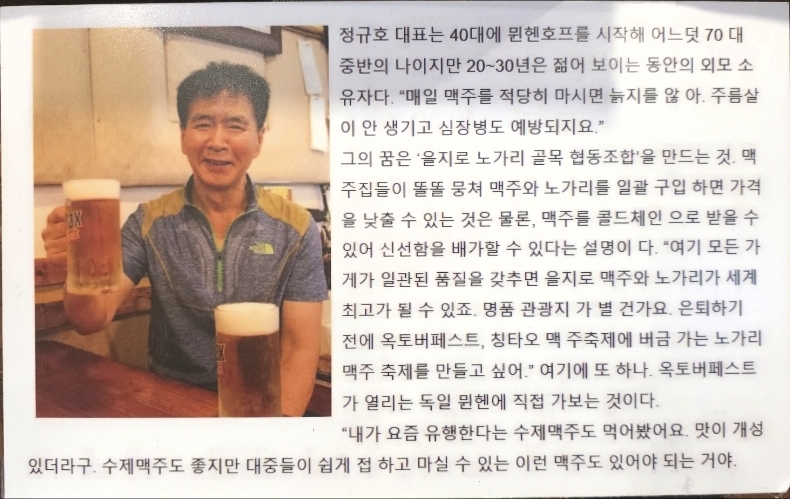 정규호 대표는 40대에 뮌헨호프를 시작해 어느덧 70 대
중반의 나이지만 20~30년은 젊어 보이는 동안의 외모 소
유자다. “매일 맥주를 적당히 마시면 늙지를 않 아. 주름살
이 안 생기고 심장병도 예방되지요.”
그의 꿈은 ‘을지로 노가리 골목 협동조합’을 만드는 것. 맥
주집들이 똘똘 뭉쳐 맥주와 노가리를 일괄 구입 하면 가격
을 낮출 수 있는 것은 물론, 맥주를 콜드체인 으로 받을 수
있어 신선함을 배가할 수 있다는 설명이 다. “여기 모든 가
게가 일관된 품질을 갖추면 을지로 맥주와 노가리가 세계
최고가 될 수 있죠. 명품 관광지 가 별 건가요. 은퇴하기
전에 옥토버페스트, 칭타오 맥 주축제에 버금 가는 노가리
맥주 축제를 만들고 싶어.” 여기에 또 하나. 옥토버페스트
가 열리는 독일 뮌헨에 직접 가보는 것이다.
“내가 요즘 유행한다는 수제맥주도 먹어봤어요. 맛이 개성
있더라구. 수제맥주도 좋지만 대중들이 쉽게 접 하고 마실 수 있는 이런 맥주도 있어야 되는 거야.